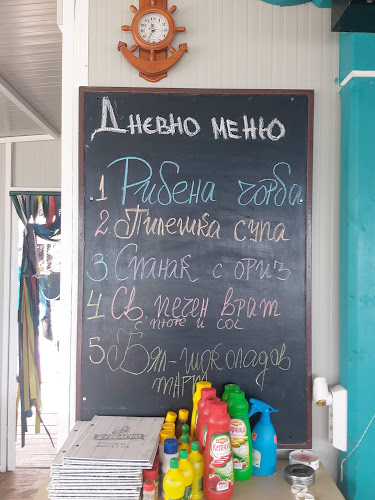 Дневно меню
1 Рибена чорба
2. Пилешка супа
3. Спанак с ориз
4 Св. печен врат
с пюре и сос
5. Бял-шоколадов
тарт